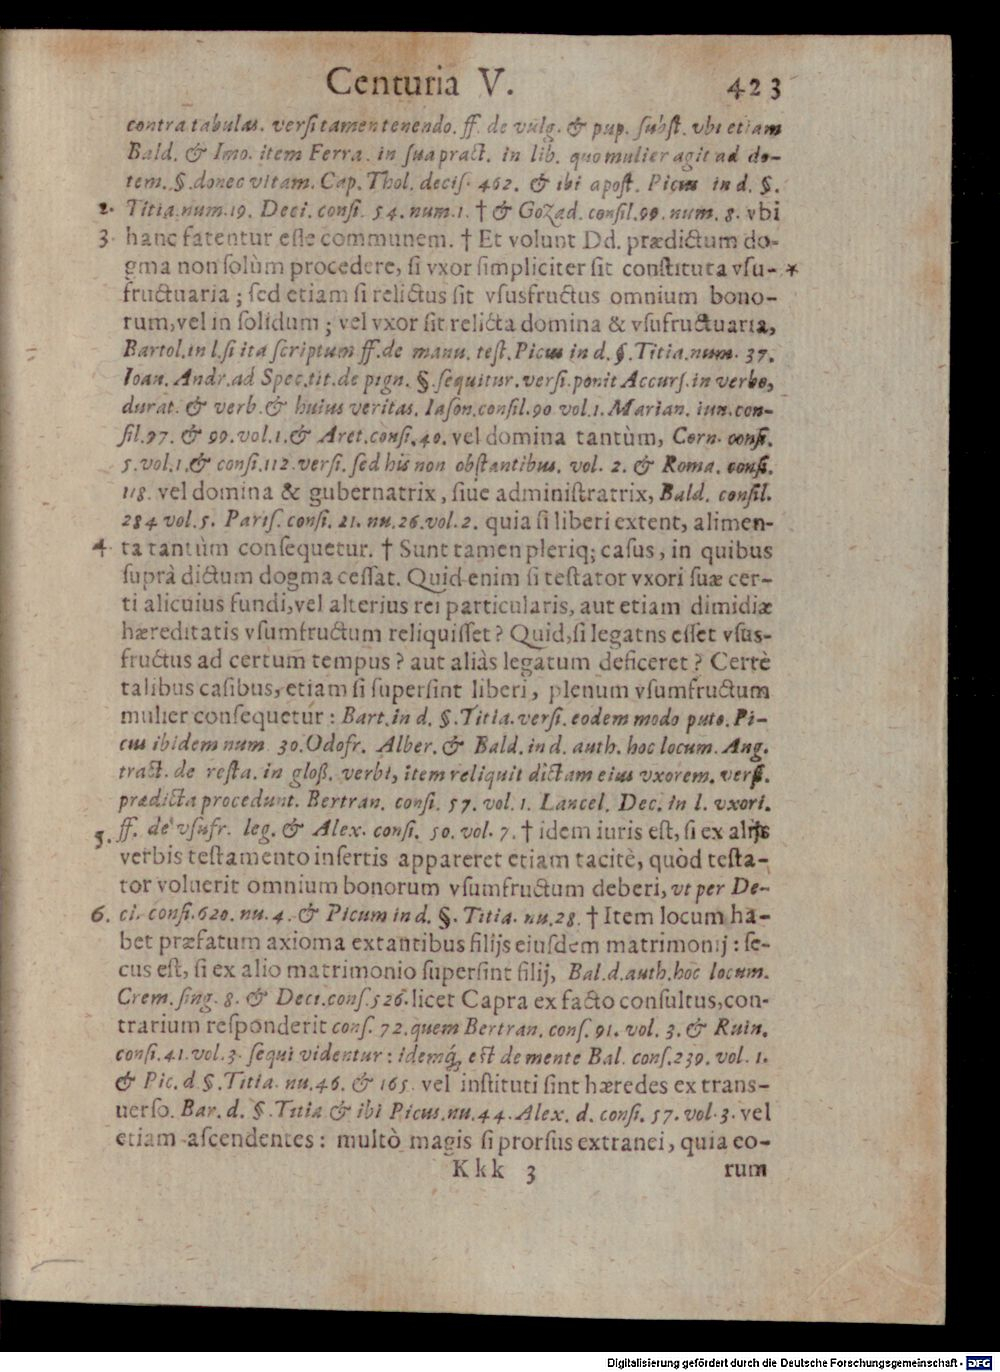 Centuria V. 423
contra tabulas. versi tamen tenendo. ff. de vulg. & pup. ſubſt. vbi etiam
Bald. & Imo. item Ferra. in ſua pract. in lib. quo mulier agit ad do-
tem. §. donec vitam. Cap. Thol. deciſ. 462. & ibi apoſt. Picus in d. §.
2. Titia. num. 19. Deci. conſi. 54. num. 1. † & Gozad. conſil. 99. num. 8. vbi
3. hanc fatentur eſſe communem. † Et volunt Dd. prædictum do-
gma non ſolùm procedere, ſi vxor ſimpliciter ſit conſtituta vſu- *
fructuaria ; ſed etiam ſi relictus ſit vſusfructus omnium bono-
rum, vel in ſolidum ; vel vxor ſit relicta domina & vſufructuaria,
Bartol. in l. ſi ita ſcriptum ff. de manu. teſt. Picus in d. §. Titia. num. 37.
Ioan. Andr. ad Spec. tit. de pign. §. ſequitur. verſi. ponit Accurſ. in verbo,
durat. & verb. & huius veritas. Iaſon. conſil. 90 vol. 1. Marian. iun. con-
ſil. 97. & 99. vol. 1. & Aret. conſi. 40. vel domina tantùm, Corn. conſi.
5. vol. 1. & conſi. 112. verſi. ſed his non obſtantibus. vol. 2. & Roma. conſi.
118. vel domina & gubernatrix, ſiue adminiſtratrix, Bald. conſil.
284 vol. 5. Pariſ. conſi. 21. nu. 26. vol. 2. quia ſi liberi extent, alimen-
4 ta tantùm conſequetur. † Sunt tamen pleriq; caſus, in quibus
ſuprà dictum dogma ceſſat. Quid enim ſi teſtator vxori ſuæ cer-
ti alicuius fundi, vel alterius rei particularis, aut etiam dimidiæ
hæreditatis vſumfructum reliquiſſet ? Quid, ſi legatns eſſet vſus-
fructus ad certum tempus ? aut aliàs legatum deficeret ? Certè
talibus caſibus, etiam ſi ſuperſint liberi, plenum vſumfructum
mulier conſequetur : Bart. in d. §. Titia. verſi. eodem modo puto. Pi-
cus ibidem num. 30. Odofr. Alber. & Bald. in d. auth. hoc locum. Ang.
tract. de reſta. in gloß. verbi, item reliquit dictam eius vxorem. verſ.
prædicta procedunt. Bertran. conſi. 57. vol. 1. Lancel. Dec. in l. vxori.
5. ff. de vſufr. leg. & Alex. conſi. 50. vol. 7. † idem iuris eſt, ſi ex alijs
verbis teſtamento inſertis appareret etiam tacitè, quòd teſta-
tor voluerit omnium bonorum vſumfructum deberi, vt per De-
6. ci. conſi. 620. nu. 4. & Picum in d. §. Titia. nu. 28. † Item locum ha-
bet præfatum axioma extantibus filijs eiuſdem matrimonij : ſe-
cus eſt, ſi ex alio matrimonio ſuperſint filij, Bal. d. auth. hoc locum.
Crem. ſing. 8. & Deci. conſ. 526. licet Capra ex facto conſultus, con-
trarium reſponderit conſ. 72. quem Bertran. conſ. 91. vol. 3. & Ruin.
conſi. 41. vol. 3. ſequi videntur : idemq́; est de mente Bal. conſ. 239. vol. 1.
& Pic. d. §. Titia. nu. 46. & 165. vel inſtituti ſint hæredes ex trans-
uerſo. Bar. d. §. Titia & ibi Picus. nu. 44. Alex. d. conſi. 57. vol. 3. vel
etiam aſcendentes : multò magis ſi prorſus extranei, quia eo-
Kkk 3 rum
Digitalisierung gefördert durch die Deutsche Forschungsgemeinschaft - DFG